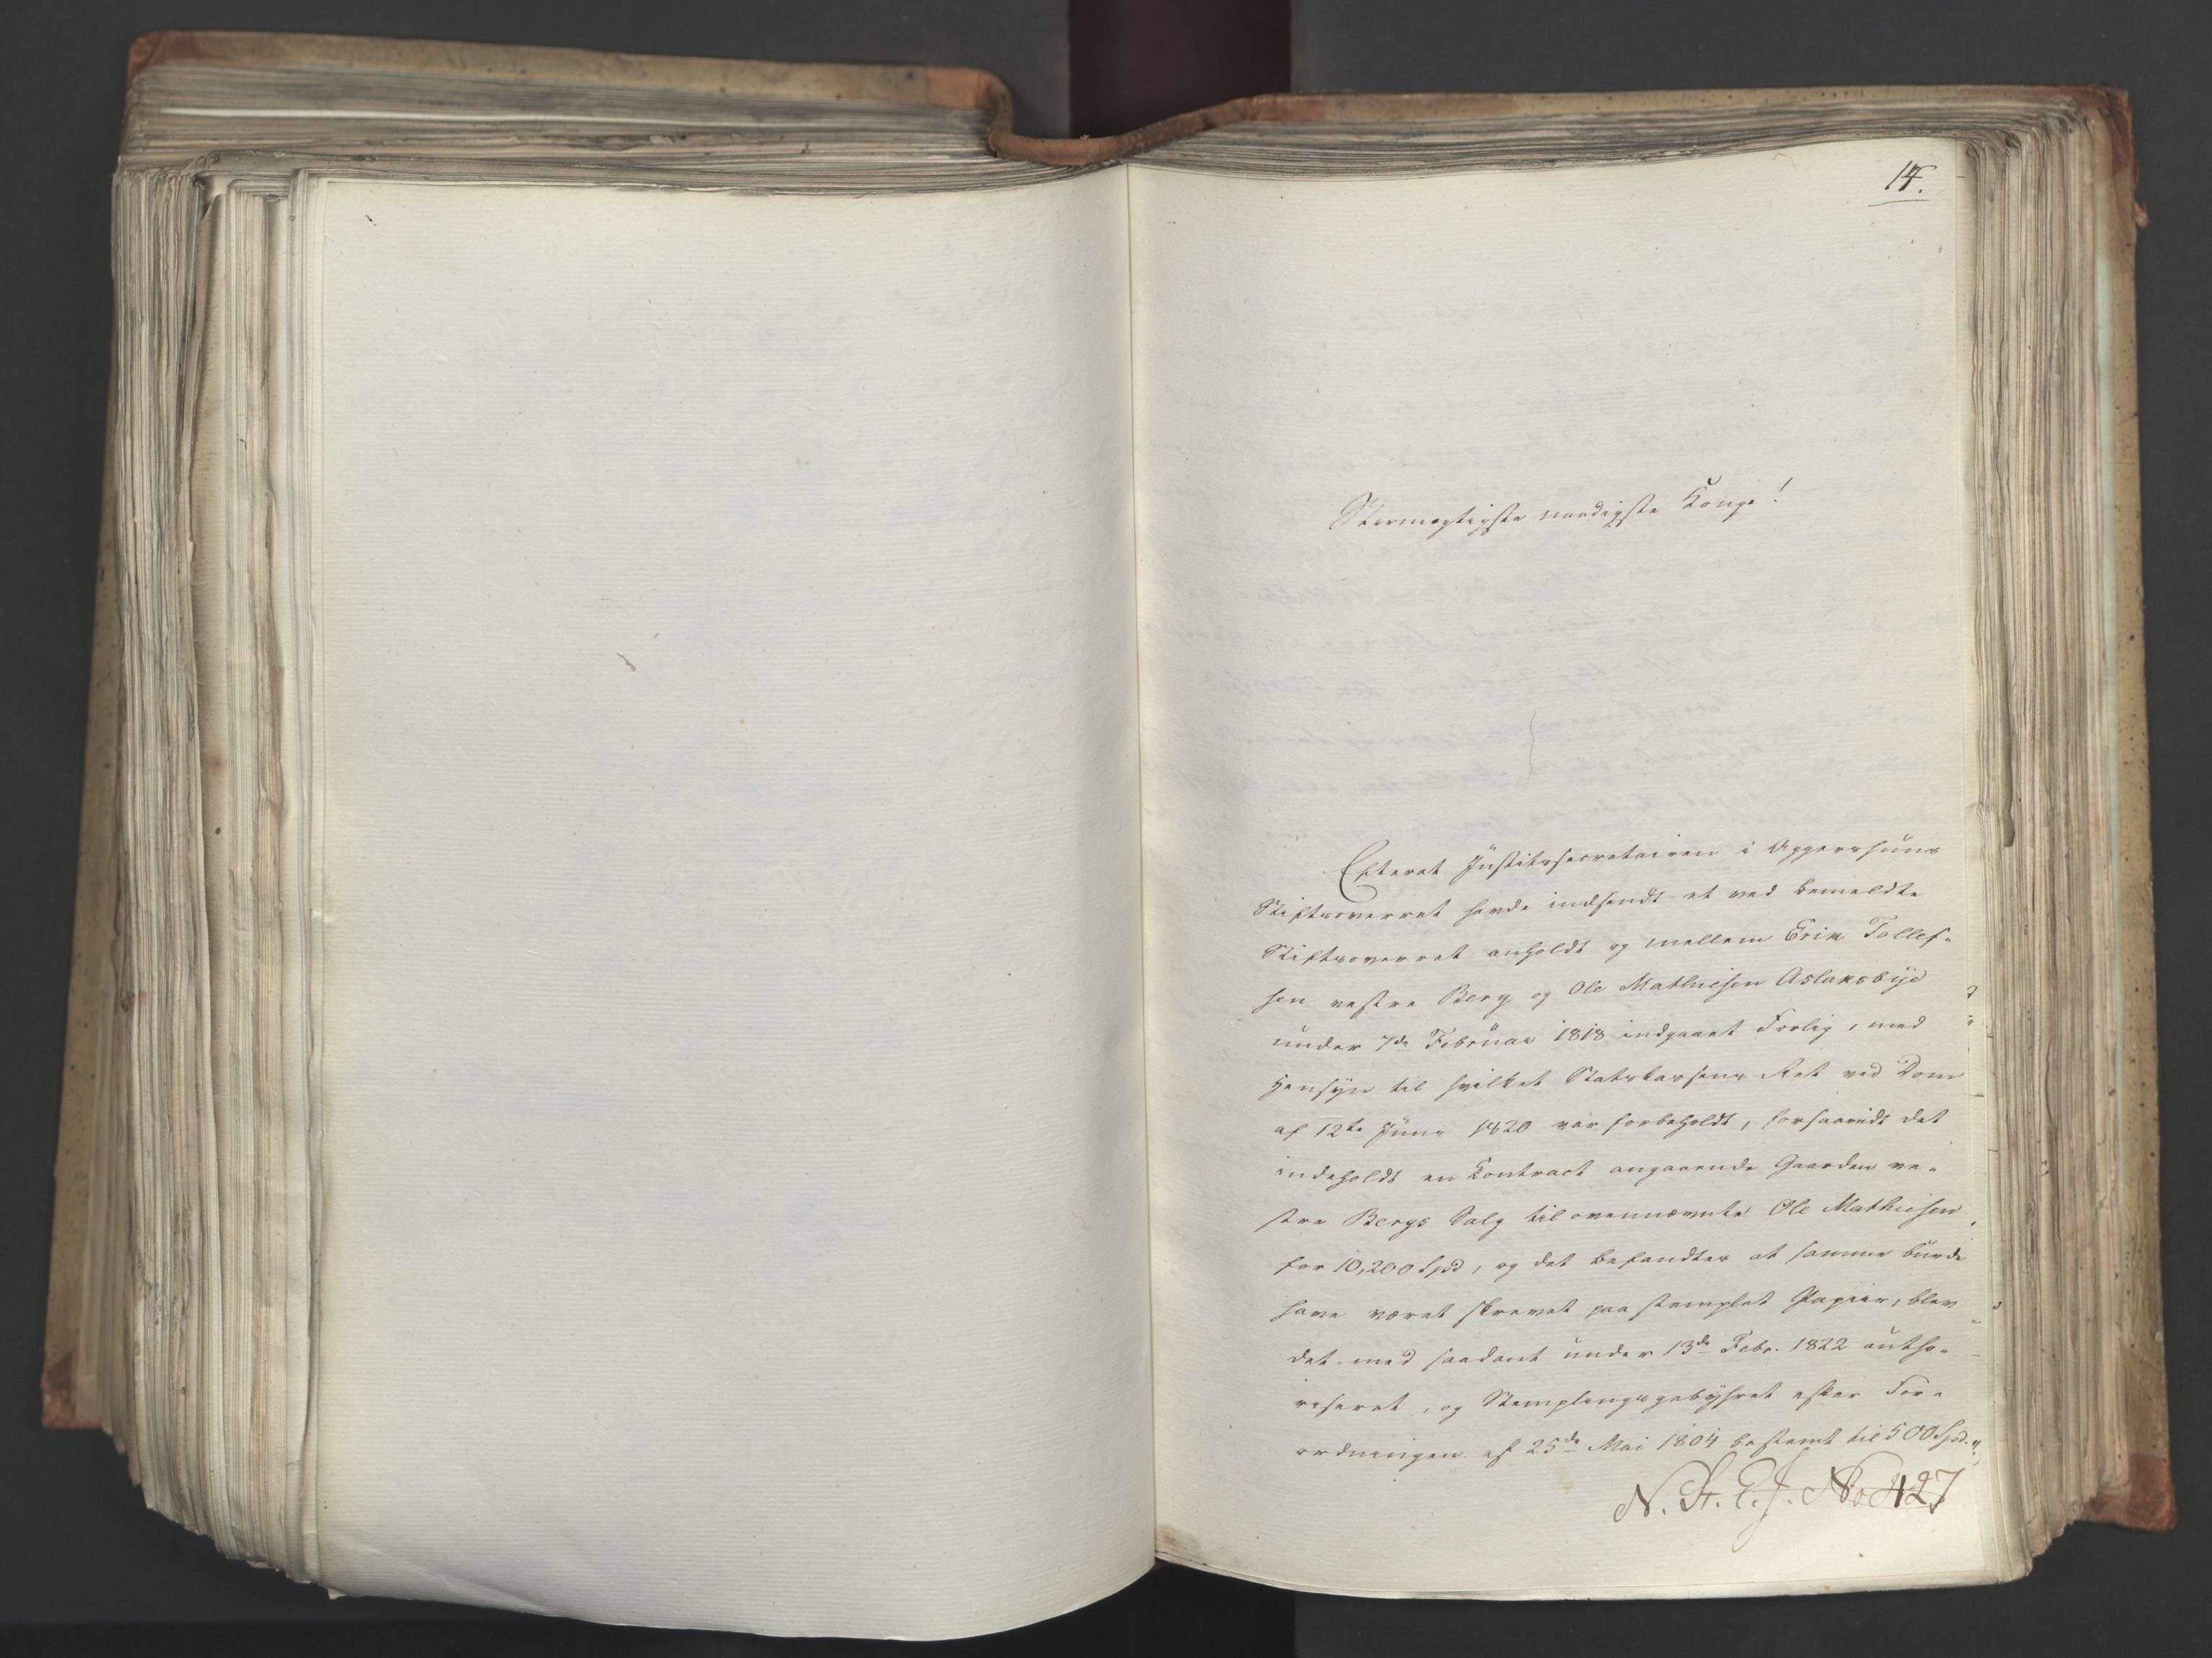 14.
Stormægtigste naadigste Konge!
Efterat Justitssecretairen i Aggershuus
Stiftsoverret havde indsendt et ved bemeldte
Stiftsoverret anholdt og mellem Erik Tollef-
sen vestre Berg og Ole Mathiesen Aslaksbye
under 7de Februar 1818 indgaaet Forlig, med
Hensyn til hvilket Statskassens Ret ved Dom
af 12te Juni 1820 var forbeholdt, forsaavidt det
indeholdt en Contract angaaende Gaarden ve-
stre Bergs Salg til ovennævnte Ole Mathiesen
for 10,200 Spd, og det befandtes at samme burde
have været skrevet paa stemplet Papiir, blev
det med saadant under 13de Febr. 1822 autho-
riseret, og Stemplingsgebyhret efter For-
ordningen af 25de Mai 1804 bestemt til 500 Spd.
N. St. E. J. No 427